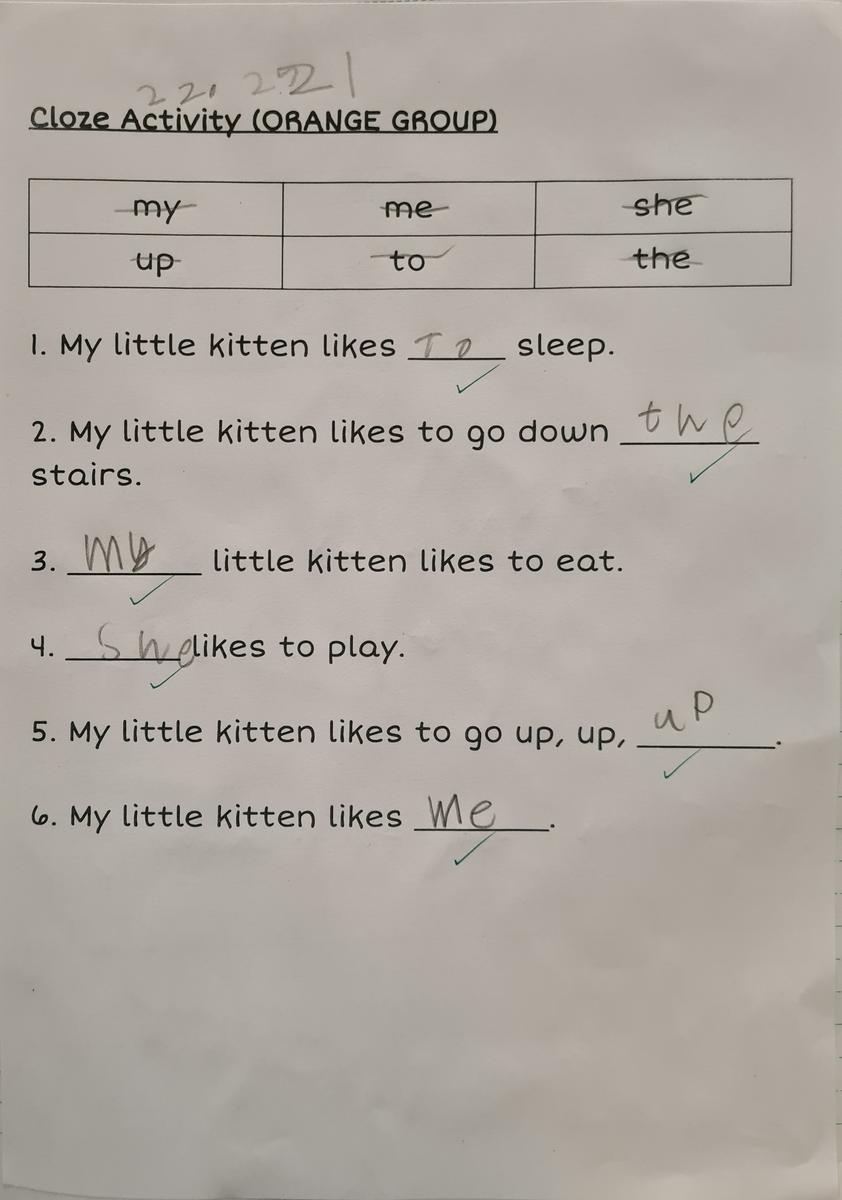 22. 2.21
Cloze Activity (ORANGE GROUP)
my me she
up to the
1. My little kitten likes To sleep.
2. My little kitten likes to go down the
stairs.
3. My little kitten likes to eat.
4. She likes to play.
5. My little kitten likes to go up, up, up.
6. My little kitten likes me.